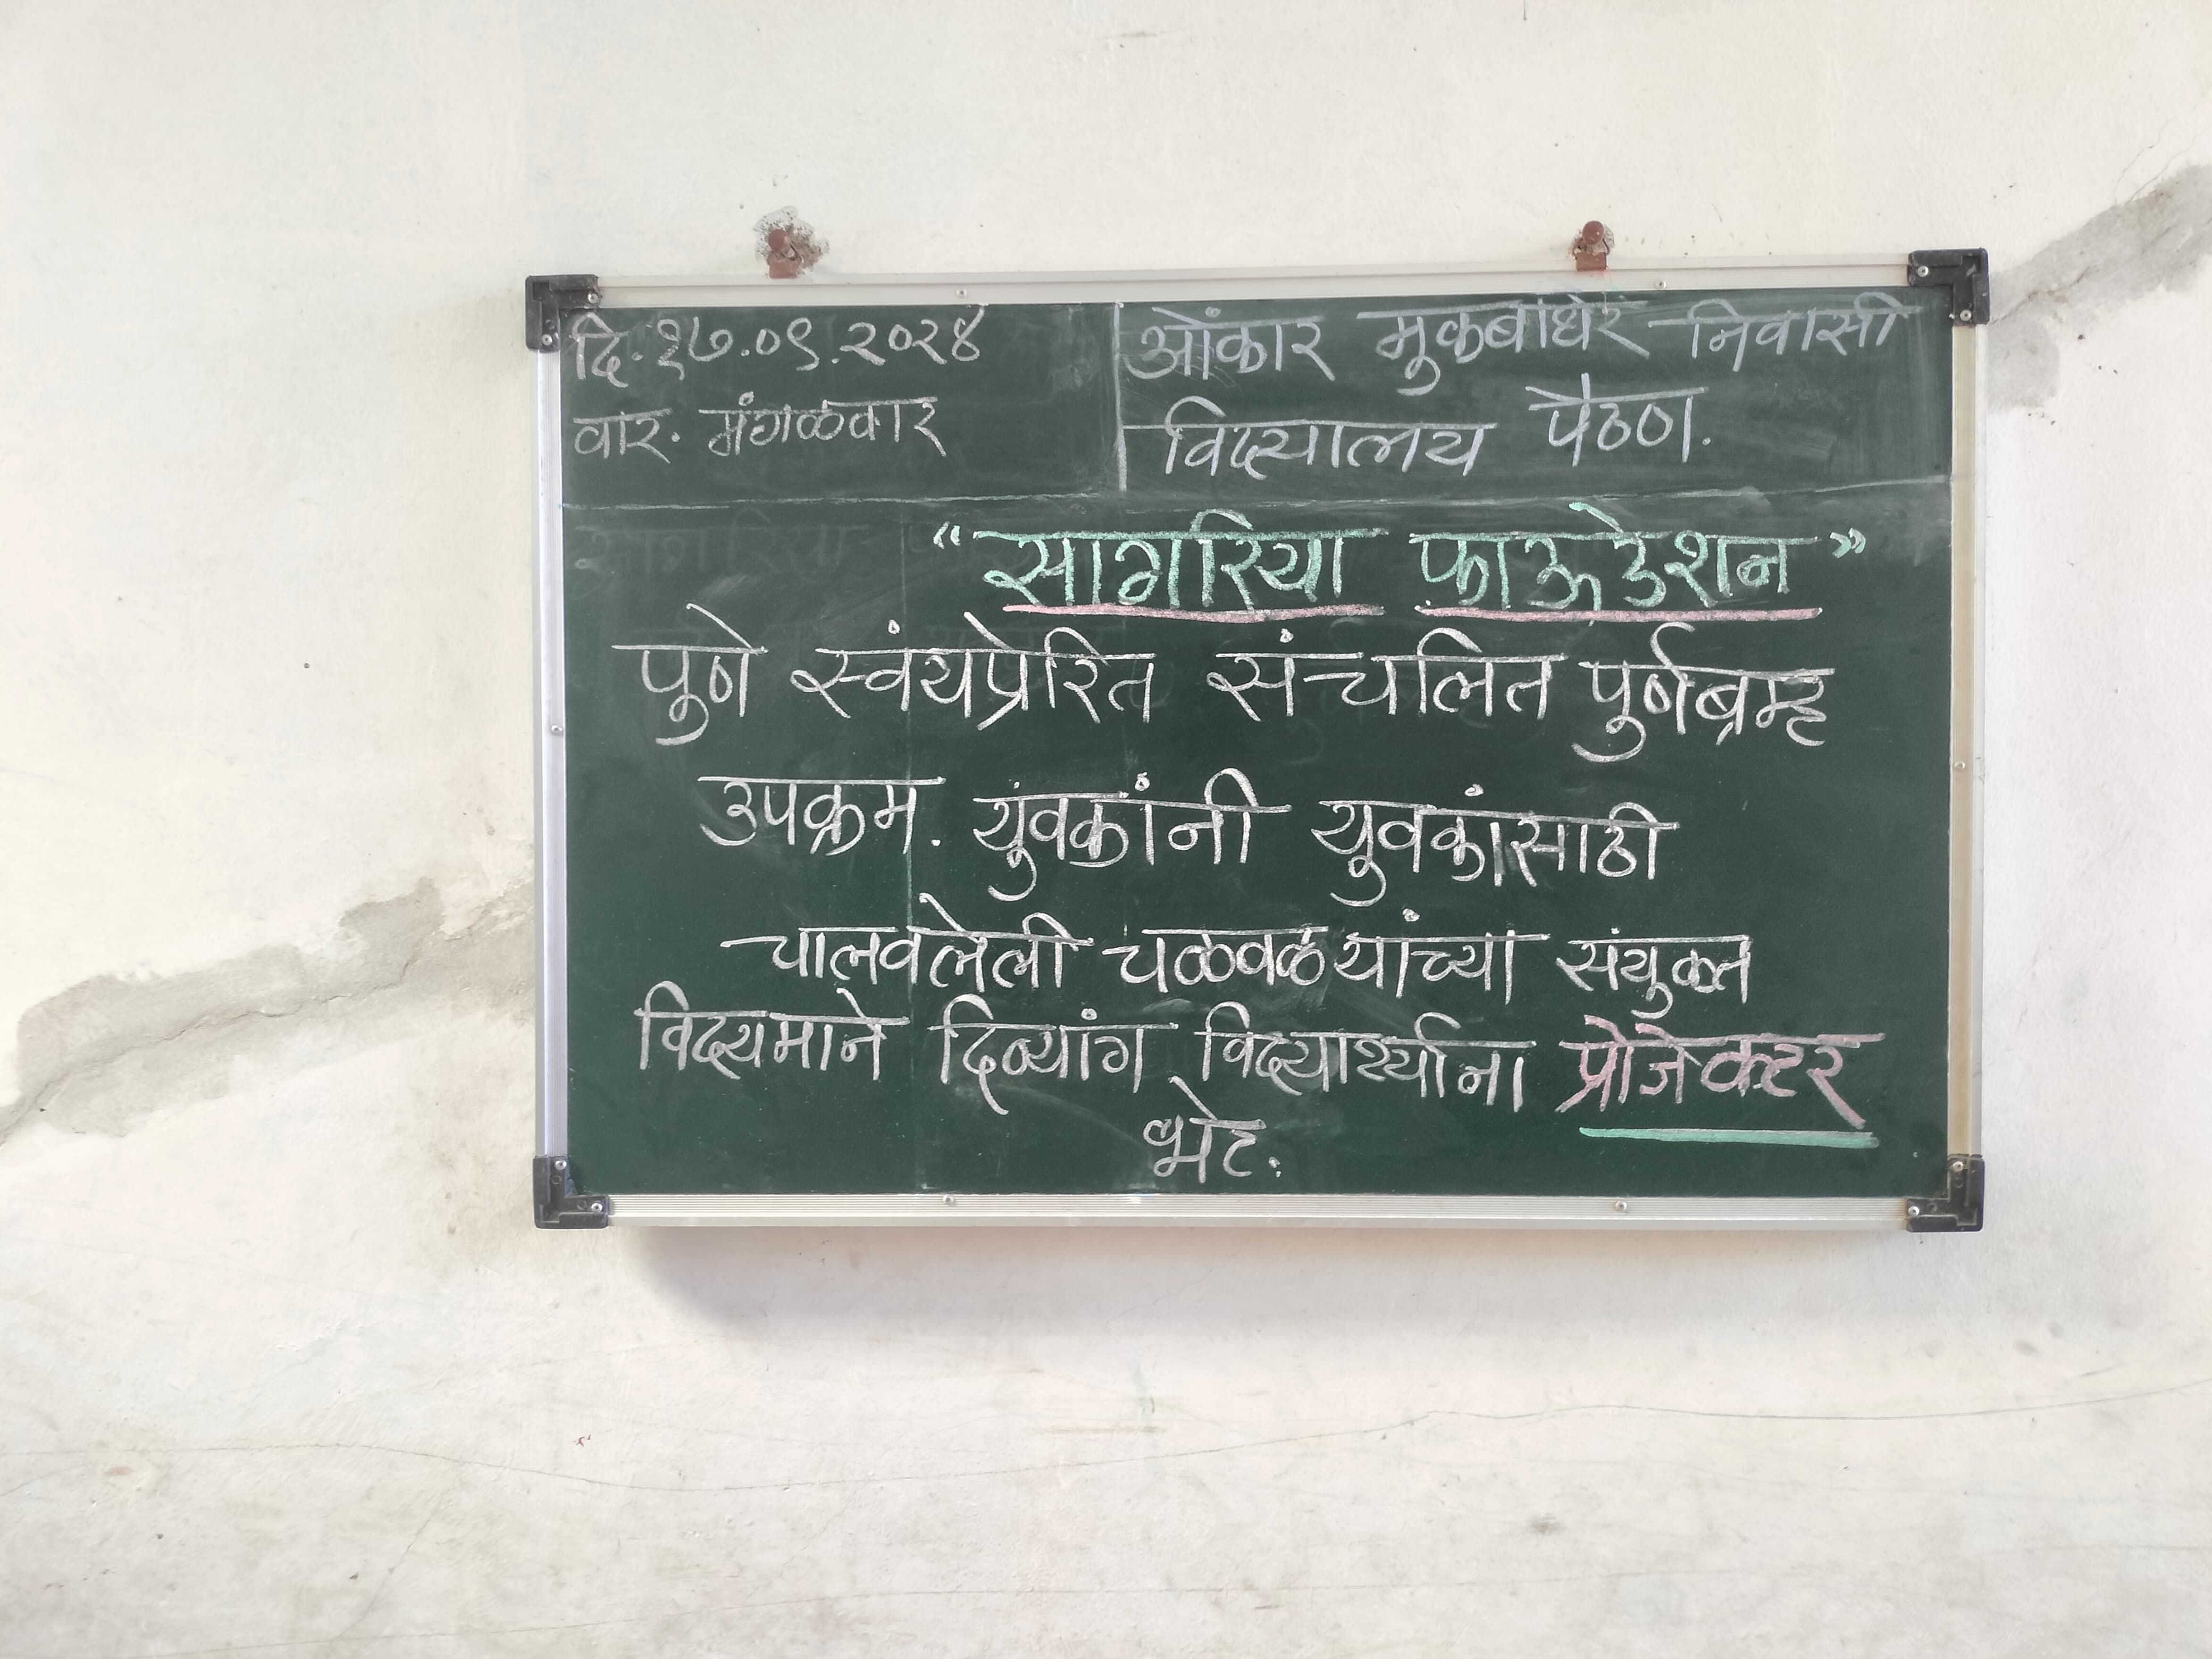 दि. १७.०९.२०२४
वार. मंगळवार
ओंकार मुकबधिर निवासी
विद्यालय पैठण.
“सागरिया फाऊडेशन”
पुणे स्वंयप्रेरित संचलित पुर्णब्रम्ह
उपक्रम. युंवकांनी युवकांसाठी
चालवलेली चळवळ यांच्या संयुक्त
विद्यमाने दिव्यांग विद्यार्थ्यांना प्रोजेक्टर
भेट.